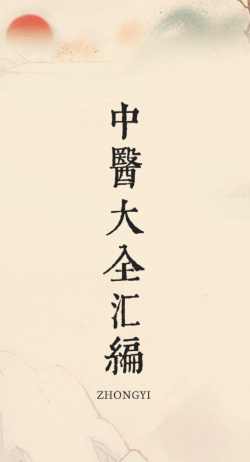 中醫大全汇編
ZHONGYI